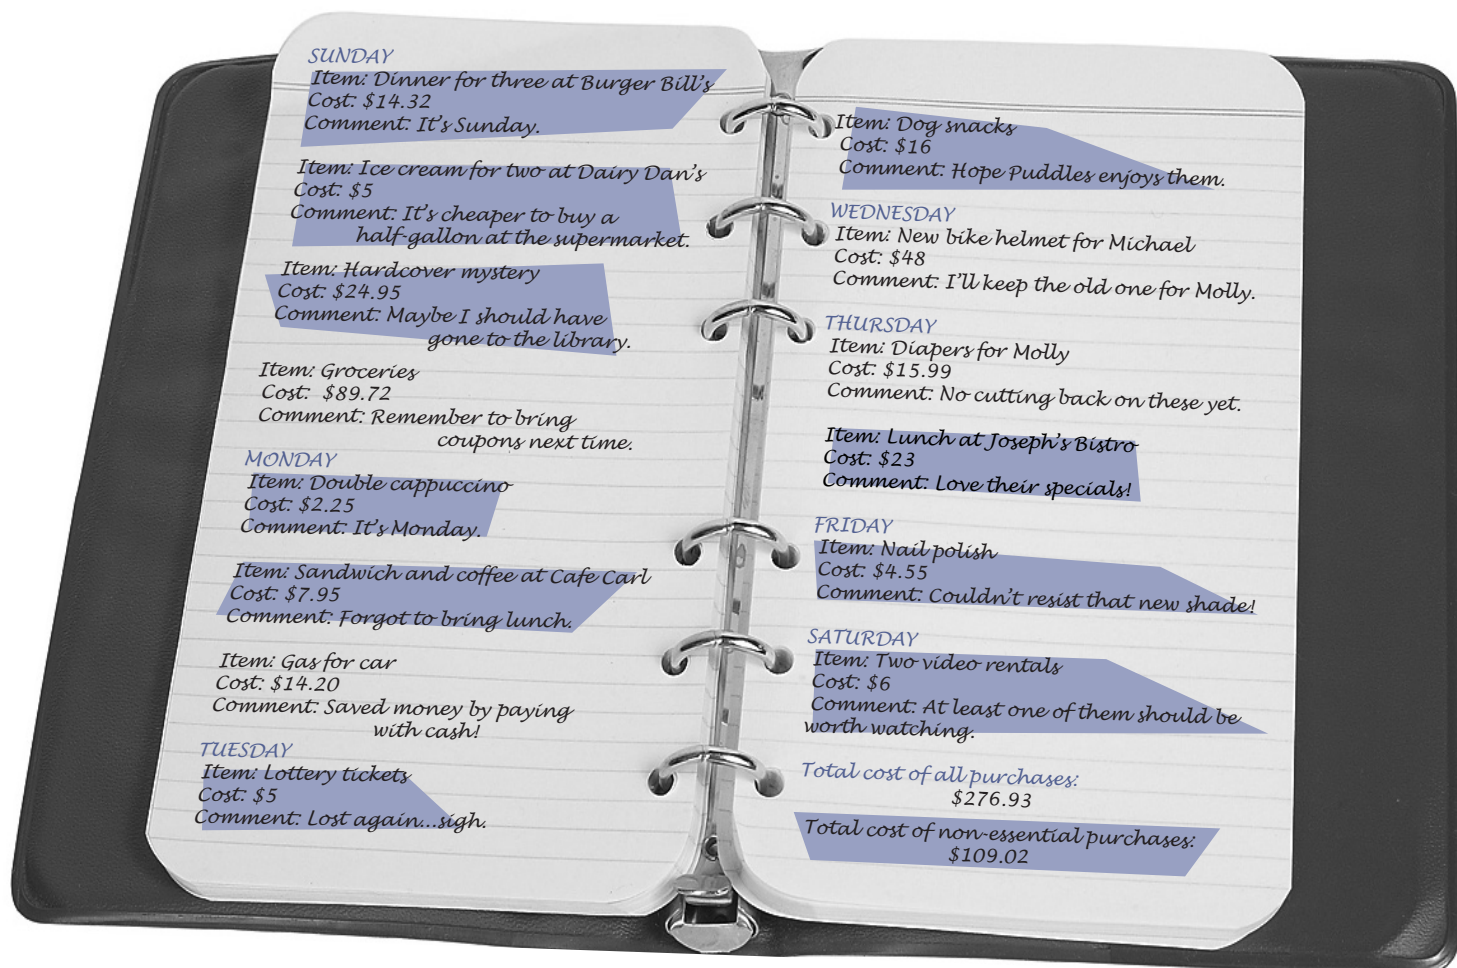 SUNDAY
Item: Dinner for three at Burger Bill's
Cost: $14.32
Comment: It's Sunday.
Item: Ice cream for two at Dairy Dan's
Cost: $5
Comment: It's cheaper to buy a
half-gallon at the supermarket.
Item: Hardcover mystery
Cost: $24.95
Comment: Maybe I should have
gone to the library.
Item: Groceries
Cost: $89.72
Comment: Remember to bring
coupons next time.
MONDAY
Item: Double cappuccino
Cost: $2.25
Comment: It's Monday.
Item: Sandwich and coffee at Cafe Carl
Cost: $7.95
Comment: Forgot to bring lunch.
Item: Gas for car
Cost: $14.20
Comment: Saved money by paying
with cash!
TUESDAY
Item: Lottery tickets
Cost: $5
Comment: Lost again...sigh.
Item: Dog snacks
Cost: $16
Comment: Hope Puddles enjoys them.
WEDNESDAY
Item: New bike helmet for Michael
Cost: $48
Comment: I'll keep the old one for Molly.
THURSDAY
Item: Diapers for Molly
Cost: $15.99
Comment: No cutting back on these yet.
Item: Lunch at Joseph's Bistro
Cost: $23
Comment: Love their specials!
FRIDAY
Item: Nail polish
Cost: $4.55
Comment: Couldn't resist that new shade!
SATURDAY
Item: Two video rentals
Cost: $6
Comment: At least one of them should be
worth watching.
Total cost of all purchases:
$276.93
Total cost of non-essential purchases:
$109.02